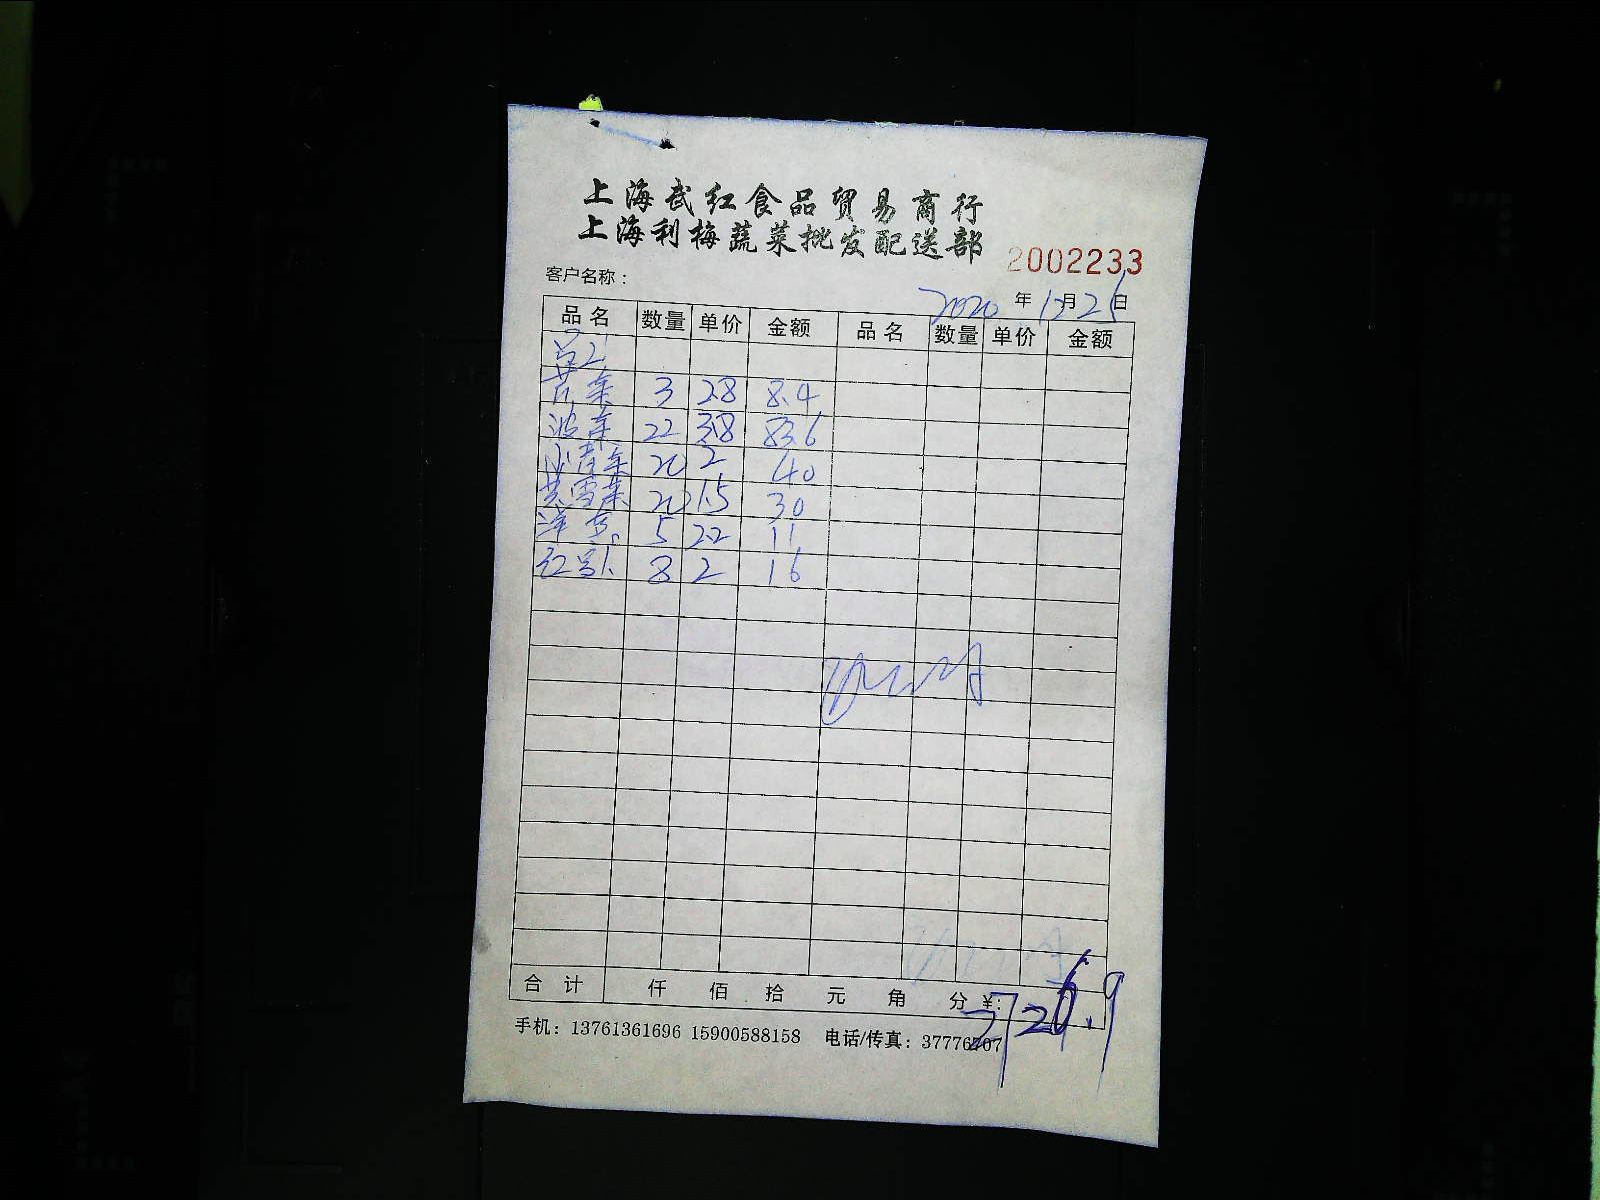 上海武红食品贸易商行
上海利梅蔬菜批发配送部
2002233
客户名称：
2020 年 12 月 26 日
品名 数量 单价 金额 品名 数量 单价 金额
3 2.8 8.4
菠菜 22 3.8 83.6
小青菜 20 2 40
20 1.5 30
洋 5 2.2 11
红 8 2 16
合计 仟 佰 拾 元 角 分 ¥:
手机：13761361696 15900588158 电话/传真：37776707